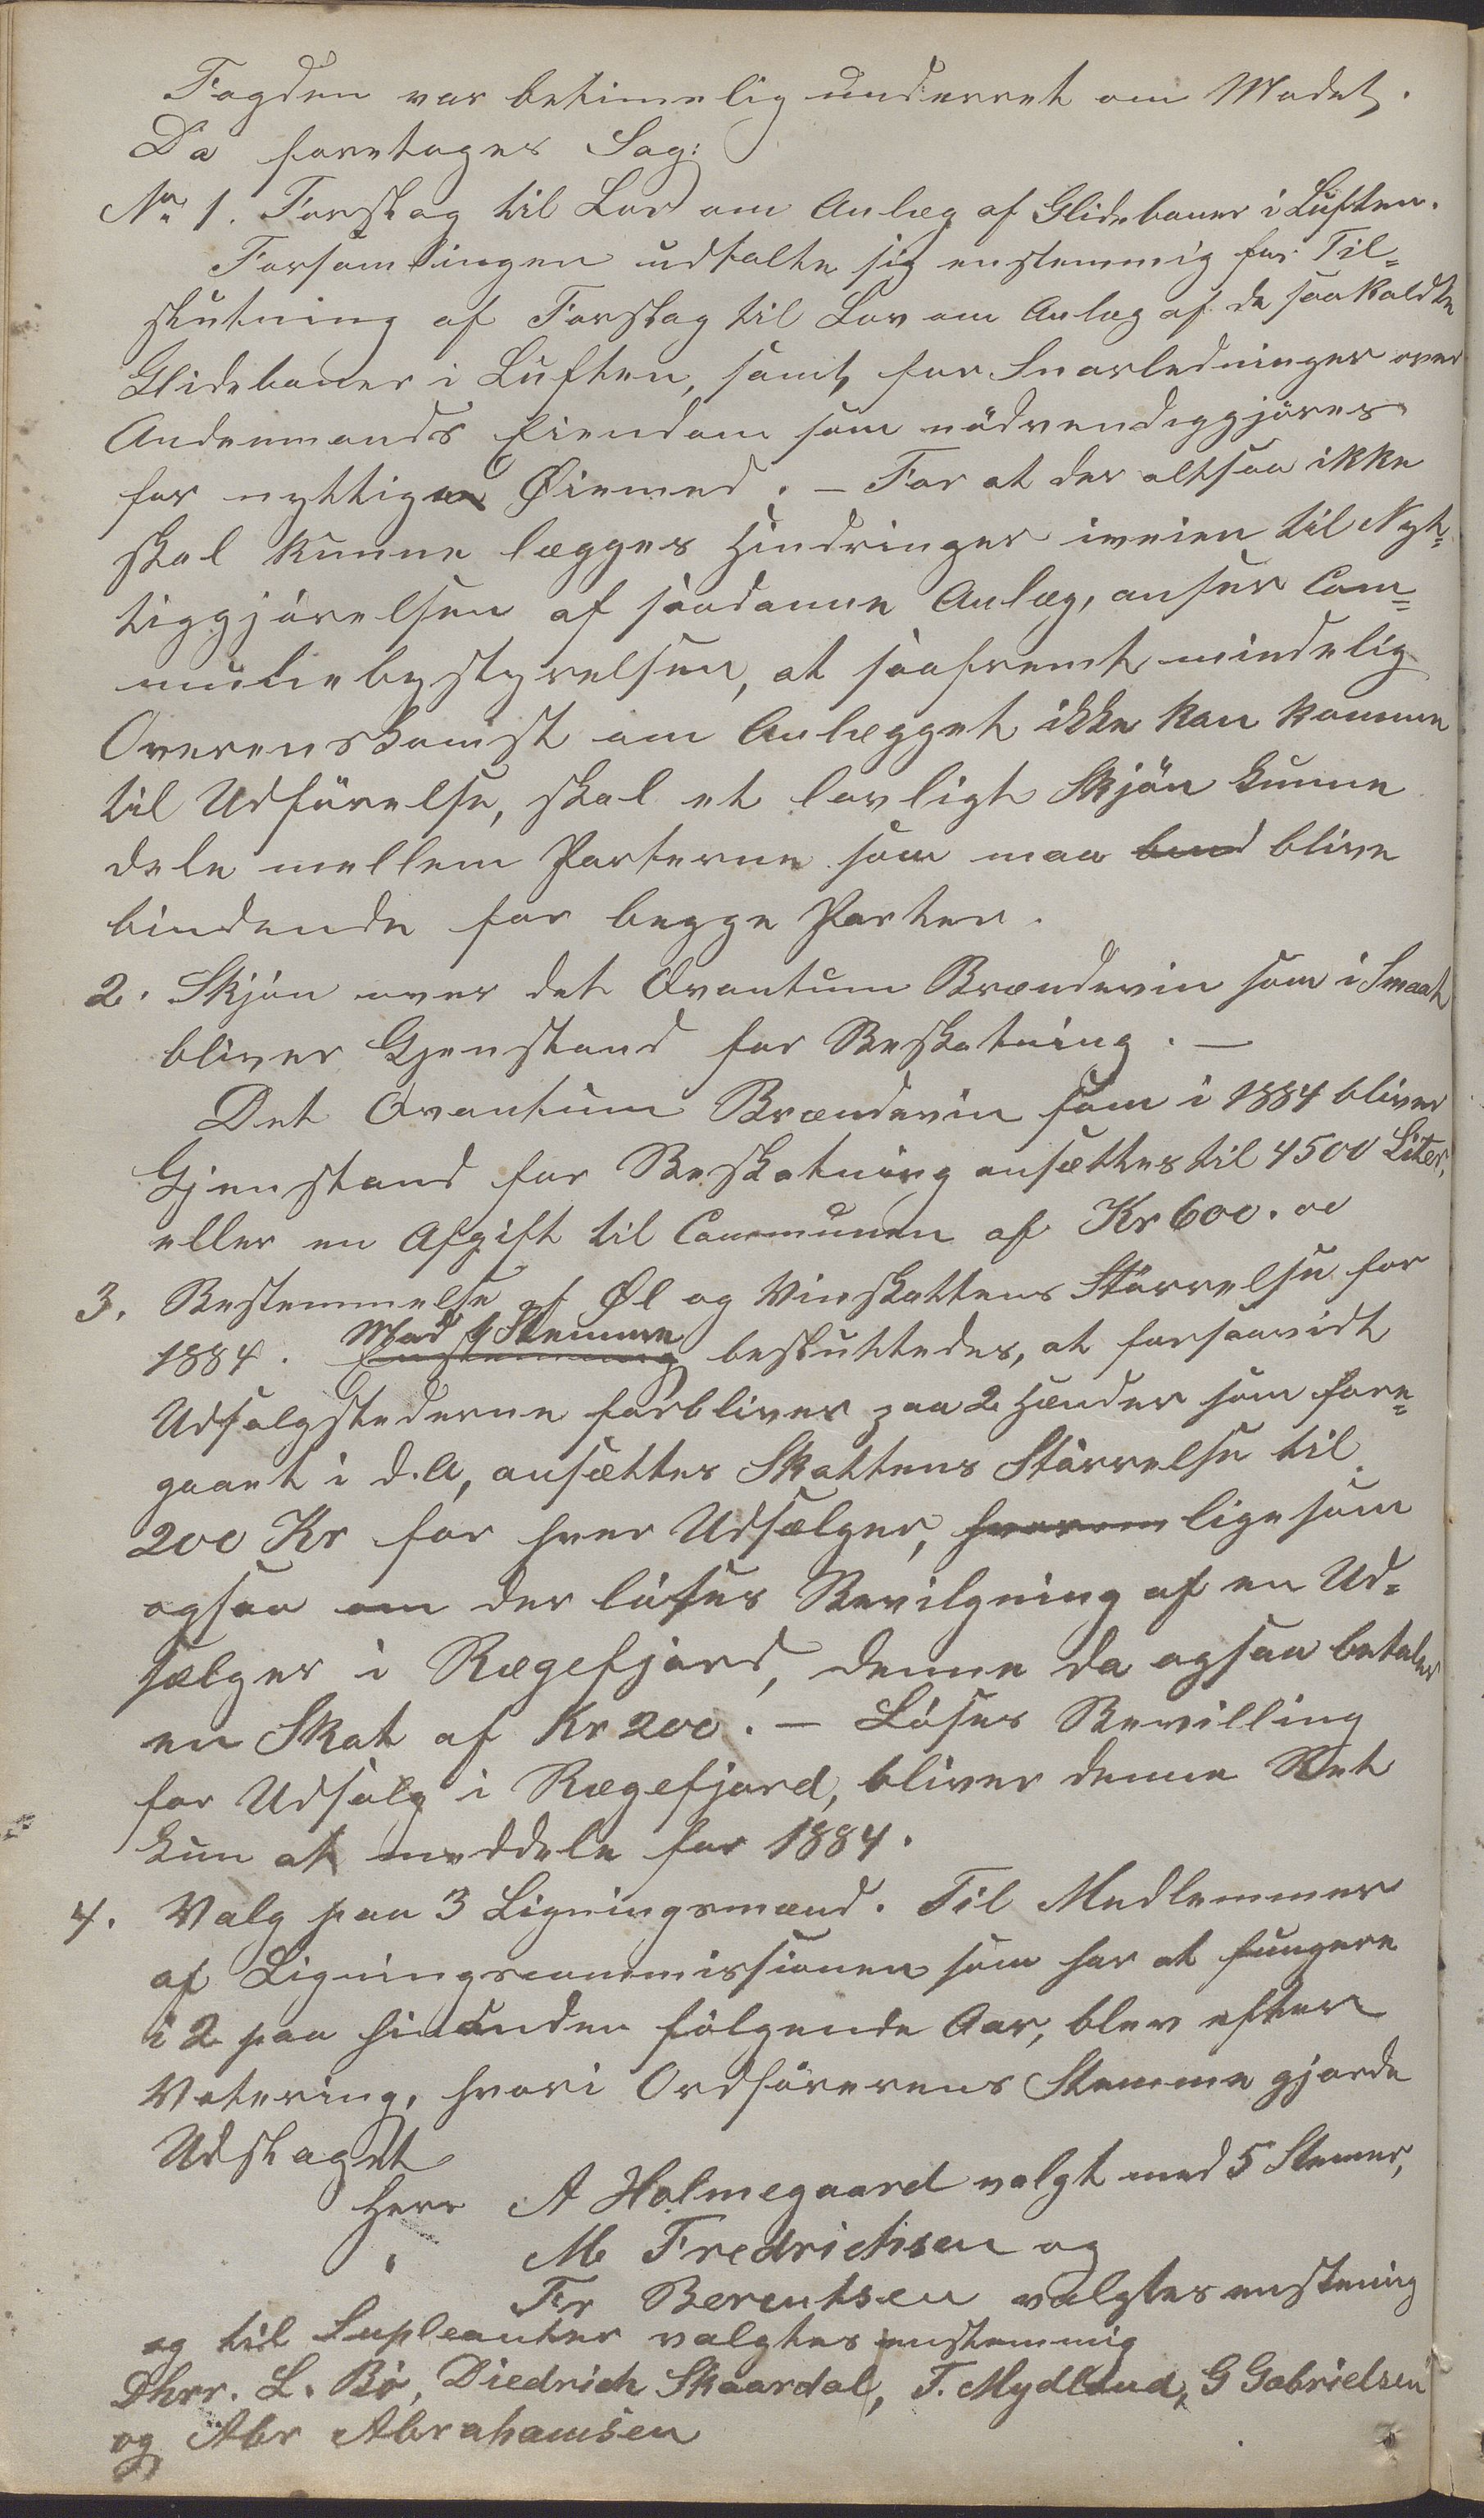 Fogden var betimelig underret om Mødet.
Da foretages Sag:
No 1. Forslag til Lov om Anlæg af Glidebaner i Luften.
Forsamlingen udtalte sig enstemmig for Til-
slutning af Forslag til Lov om Anlæg af de saakaldte
Glidebaner i Luften, samt for Snorledninger over
Andenmands Eiendom som nödvendiggjöres
for nyttige Øiemed. – For at der altsaa ikke
skal kunne lægges Hindringer iveien til Nyt-
tiggjörelsen af saadanne Anlæg, anser Com-
munebestyrelsen, at saafremt mindelig
Overenskomst om Anlægget ikke kan komme
til Udförelse, skal et lovligt Skjön kunne
dele mellem Parterne som maa bend blive
bindende for begge Parter.
2. Skjön over det Qvantum Brændevin som i Smaat
bliver Gjenstand for Beskatning. –
Det Qvantum Brændevin som i 1884 bliver
Gjenstand for Beskatning ansættes til 4500 Liter,
eller en Afgift til Communen af Kr 600.00
3. Bestemmelse af Øl og Vinskattens Störrelse for
1884. Enstemmig Mod 1 Stemme besluttedes, at forsaavidt
Udsalgstederne forbliver paa 2 Hænder som fore-
gaaet i d.A, ansættes Skattens Störrelse til
200 Kr for hver Udsælger, hvorom ligesom
ogsaa om der löses Bevilgning af en Ud-
sælger i Rægefjord, denne da ogsaa betaler
en Skat af Kr 200. – Löses Bevilling
for Udsalg i Rægefjord, bliver denne Ret
kun at meddele for 1884.
4. Valg paa 3 Ligningsmænd. Til Medlemmer
af Ligningscommissionen som har at fungere
i 2 paa hinanden fölgende Aar, blev efter
Votering, hvori Ordförerens Stemme gjorde
Udslaget
Herr A Holmegaard valgt med 5 Stemer,
" M Fredrichsen og
Fr Berentsen valgtes enstemig
og til Supleanter valgtes enstemmig
Dhrr. L. Bö, Diedrich Skaardal, T. Mydland, G Gabrielsen
og Abr Abrahamsen